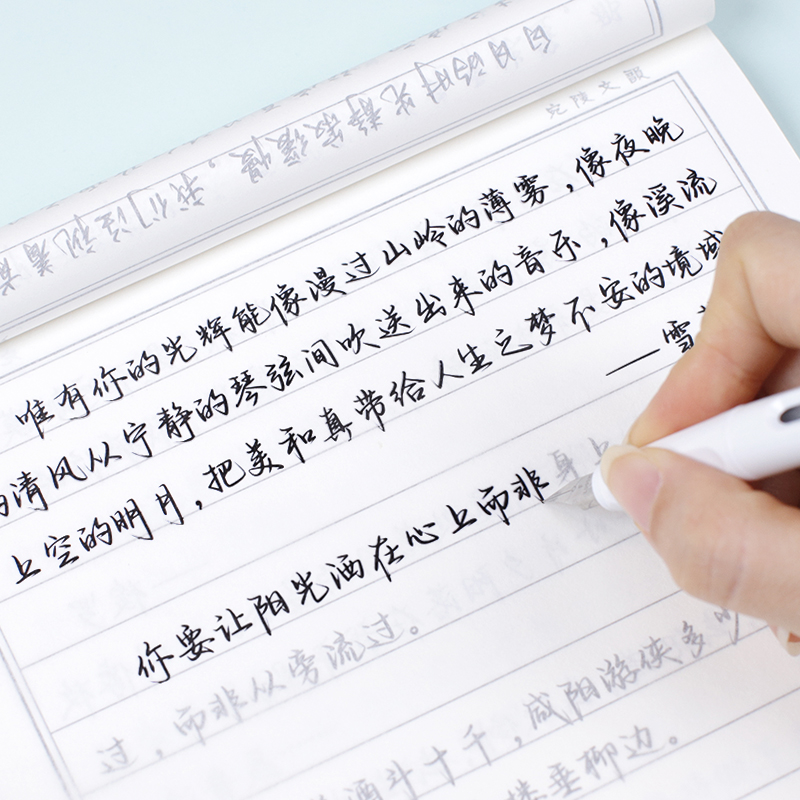 白日的时光静寂缓慢。我们注视着
唯有你的光辉能像漫过山岭的薄雾，像夜晚
的清风从宁静的琴弦间吹送出来的音乐，像溪流
上空的明月，把美和真带给人生之梦不安的境域
——雪
你要让阳光洒在心上而非身上
过，而非从旁流过。
酒斗十千，咸阳游侠多
楼垂柳边。